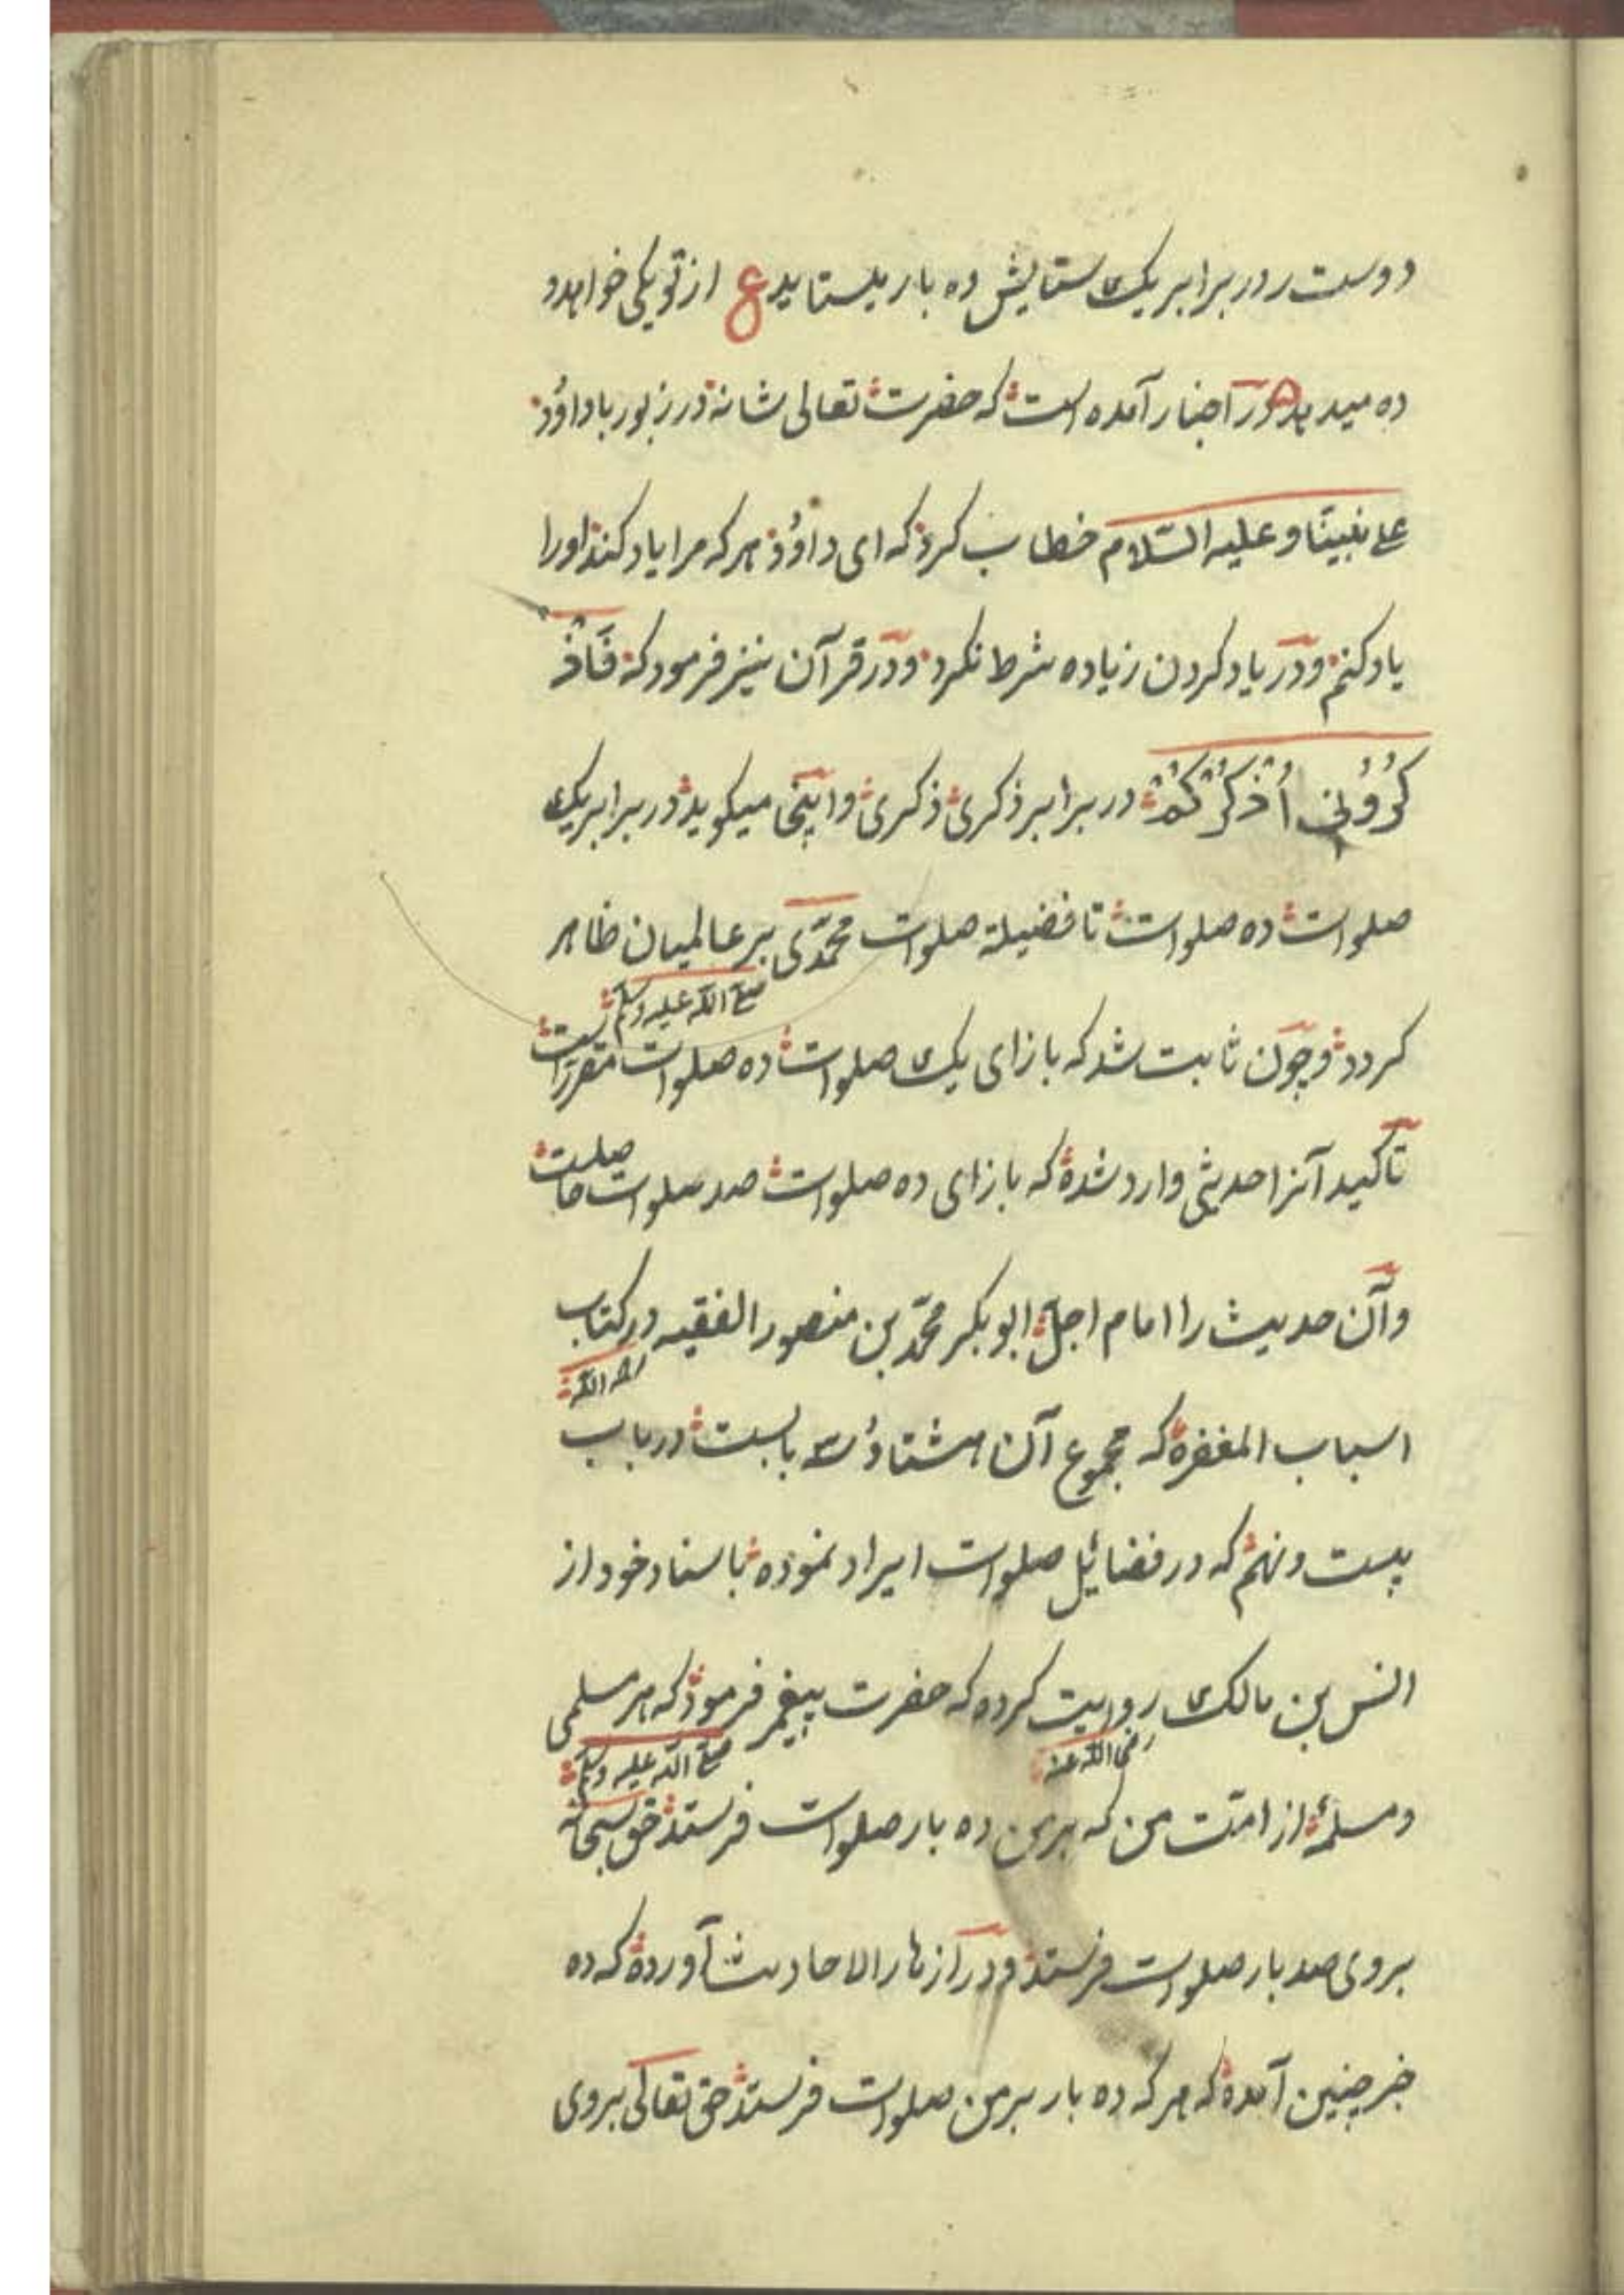 دوست رو در برابر یک ستایش ده بار بستاید ع از تو یکی خواهد و
ده میدهد و در اخبار آمده است که حضرت تعالی شانه در زبور با داؤد
علی نبینا و علیه السّلام خطاب کرد که ای داؤد هر که مرا یاد کند او را
یاد کنم و در یاد کردن زیاده شرط نکرد و در قرآن نیز فرمود که فَاذْ
کُرُوْنِی اُذْکُرْکُمْ در برابر ذکری ذکری و اینجا میگوید در برابر یک
صلوات ده صلوات تا فضیلة صلوات محمّدی بر عالمیان ظاهر
صلی الله علیه وسلم
کردد و چون ثابت شد که بازای یک صلوات ده صلوات مقرر است
تاکید آنرا حدیثی وارد شده که بازای ده صلوات صد صلوات حاصلست
و آن حدیث را امام اجلّ ابو بکر محمّد بن منصور الفقیه در کتاب
رحمه الله
اسباب المغفره که مجموع آن هشتاد و سه بابست در باب
بیست و نهم که در فضائل صلوات ایراد نموده باسناد خود از
انس بن مالک روایت کرده که حضرت پیغمبر فرمود که هر مسلمی
رضی الله عنه صلی الله علیه وسلم
و مسلمۀ از امّت من که بر من ده بار صلوات فرستد حق سبحانه
بروی صد بار صلوات فرستد و در ازهار الاحادیث آورده که ده
خبر چنین آمده که هر که ده بار بر من صلوات فرستد حق تعالی بروی